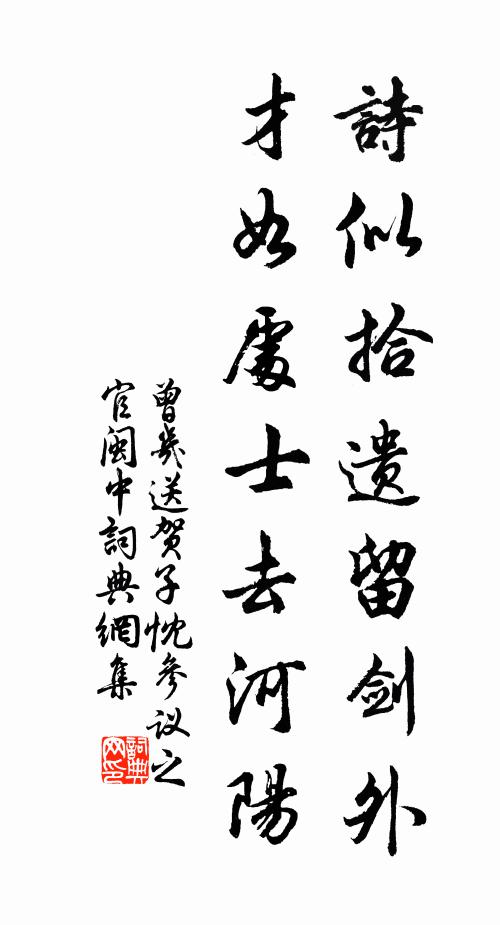 詩似拾遺留劍外
才如處士去河陽
曾幾送賀子忱參议之
官闽中詞典網集
詞典网印